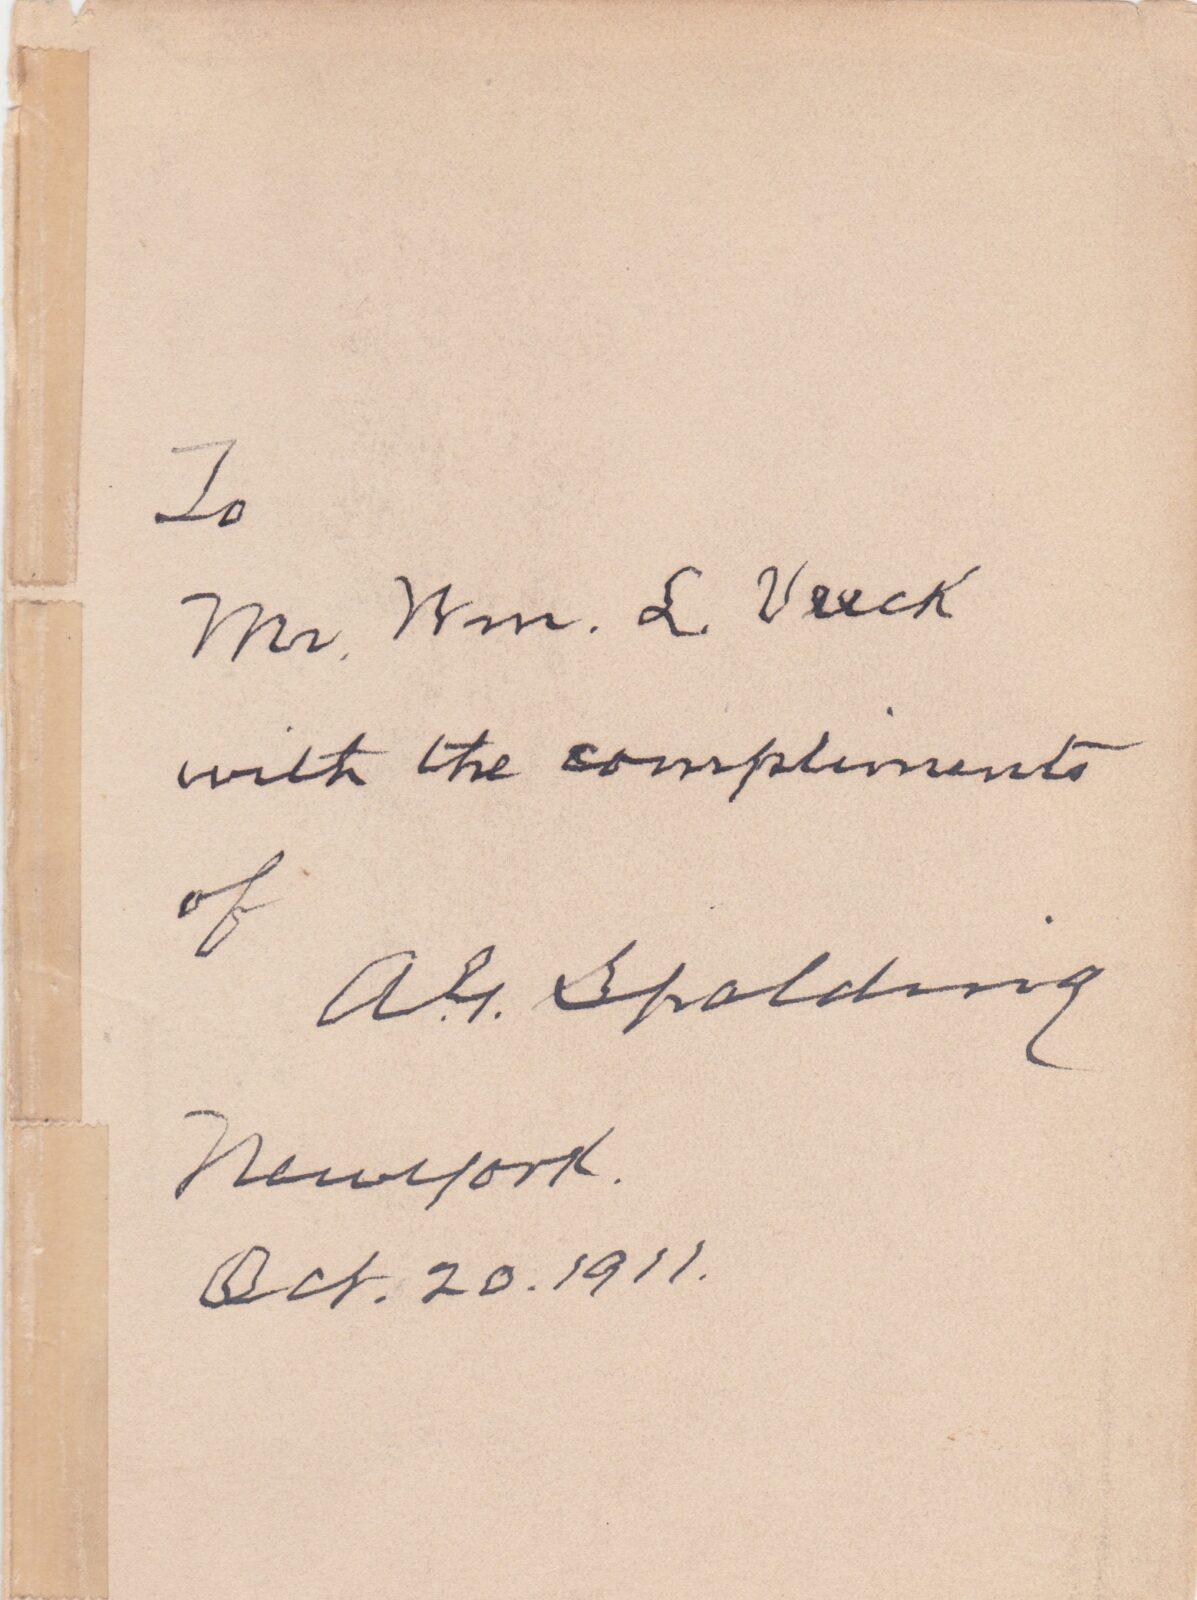 To
Mr. Wm. L. Veeck
with the compliments
of
A. G. Spalding
New York.
Oct. 20. 1911.